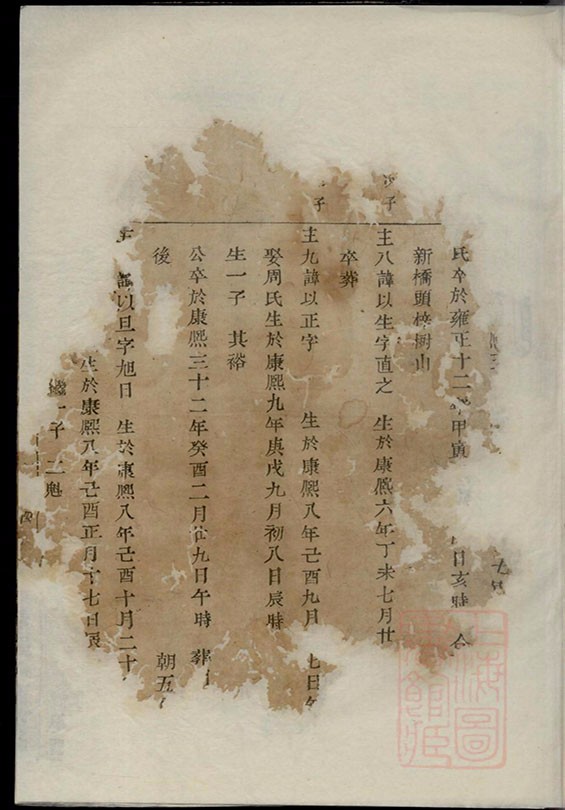 氏卒於雍正十二 甲寅 日亥時 合
新橋頭 山
主八諱以生字直之 生於康熙六年丁未七月廿
卒葬
主九諱以正字 生於康熙八年己酉九月 七日午
娶周氏生於康熙九年庚戌九月初八日辰時
生一子 其裕
公卒於康熙三十二年癸酉二月廿九日午時 葬
後 朝五
以旦字旭日 生於康熙八年己酉十月二十
生於康熙八年己酉正月十七日寅
一子 二魁
上海圖書館藏